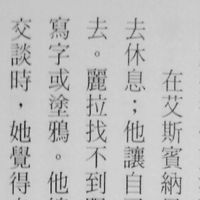 在艾斯賓納
去休息；他讓自
去。麗拉找不到
寫字或塗鴉。他
交談時，她覺得